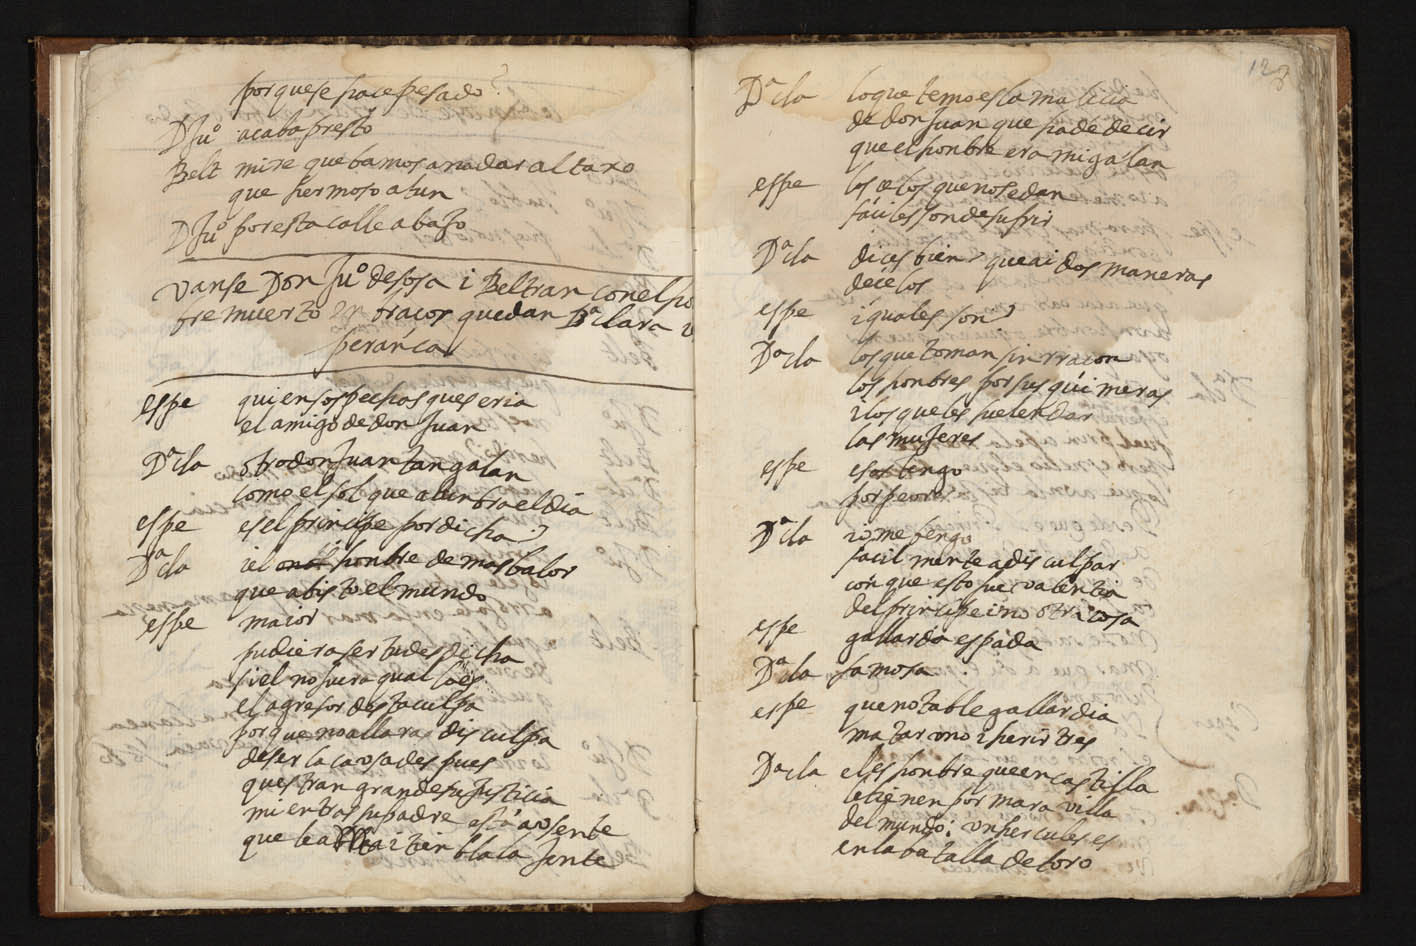 porque se hace pesado?
D Juº acaba presto
Belt mire que bamos a nadar al taxo
que hermoso atun
D Juº por esta calle abaxo
vanse Don Juº de sosa i Beltran con el ho
bre muerto en bracos quedan Dª clara i
peranca
espe quien sospechas que seria
el amigo de don Juan
Dª cla otro don Juan tan galan
como el sol que alunbra el dia
espe es el principe por dicha?
Dª cla i el honbre de mas balor
que a bisto el mundo
espe maior
pudiera ser tu desdicha
si el no fuera qual lo es
el agresor desta culpa
porque no allara disculpa
de ser la causa despues
ques tran grande su justicia
mientras su padre está ausente
que le i tienbla la Jente
123
Dª cla lo que temo es la malicia
de don Juan que ha de decir
que el honbre era mi galan
espe los celos que no se dan
fáciles son de sufrir
Dª cla dices bien? que ai dos maneras
de celos
espe iguales son?
Dª cla los que toman sin rracon
los honbres por sus quimeras
i los que les suelen dar
las mujeres
espe esos tengo
por peores
Dª cla io me bengo
facil mente a disculpar
con que esto fue valentia
del principe i no otra cosa
espe gallarda espada
Dª cla famosa
espe que notable gallardia
matar uno i herir tres
Dª cla el es honbre que en castilla
le tienen por mara villa
del mundo: un hercules es
en la batalla de toro